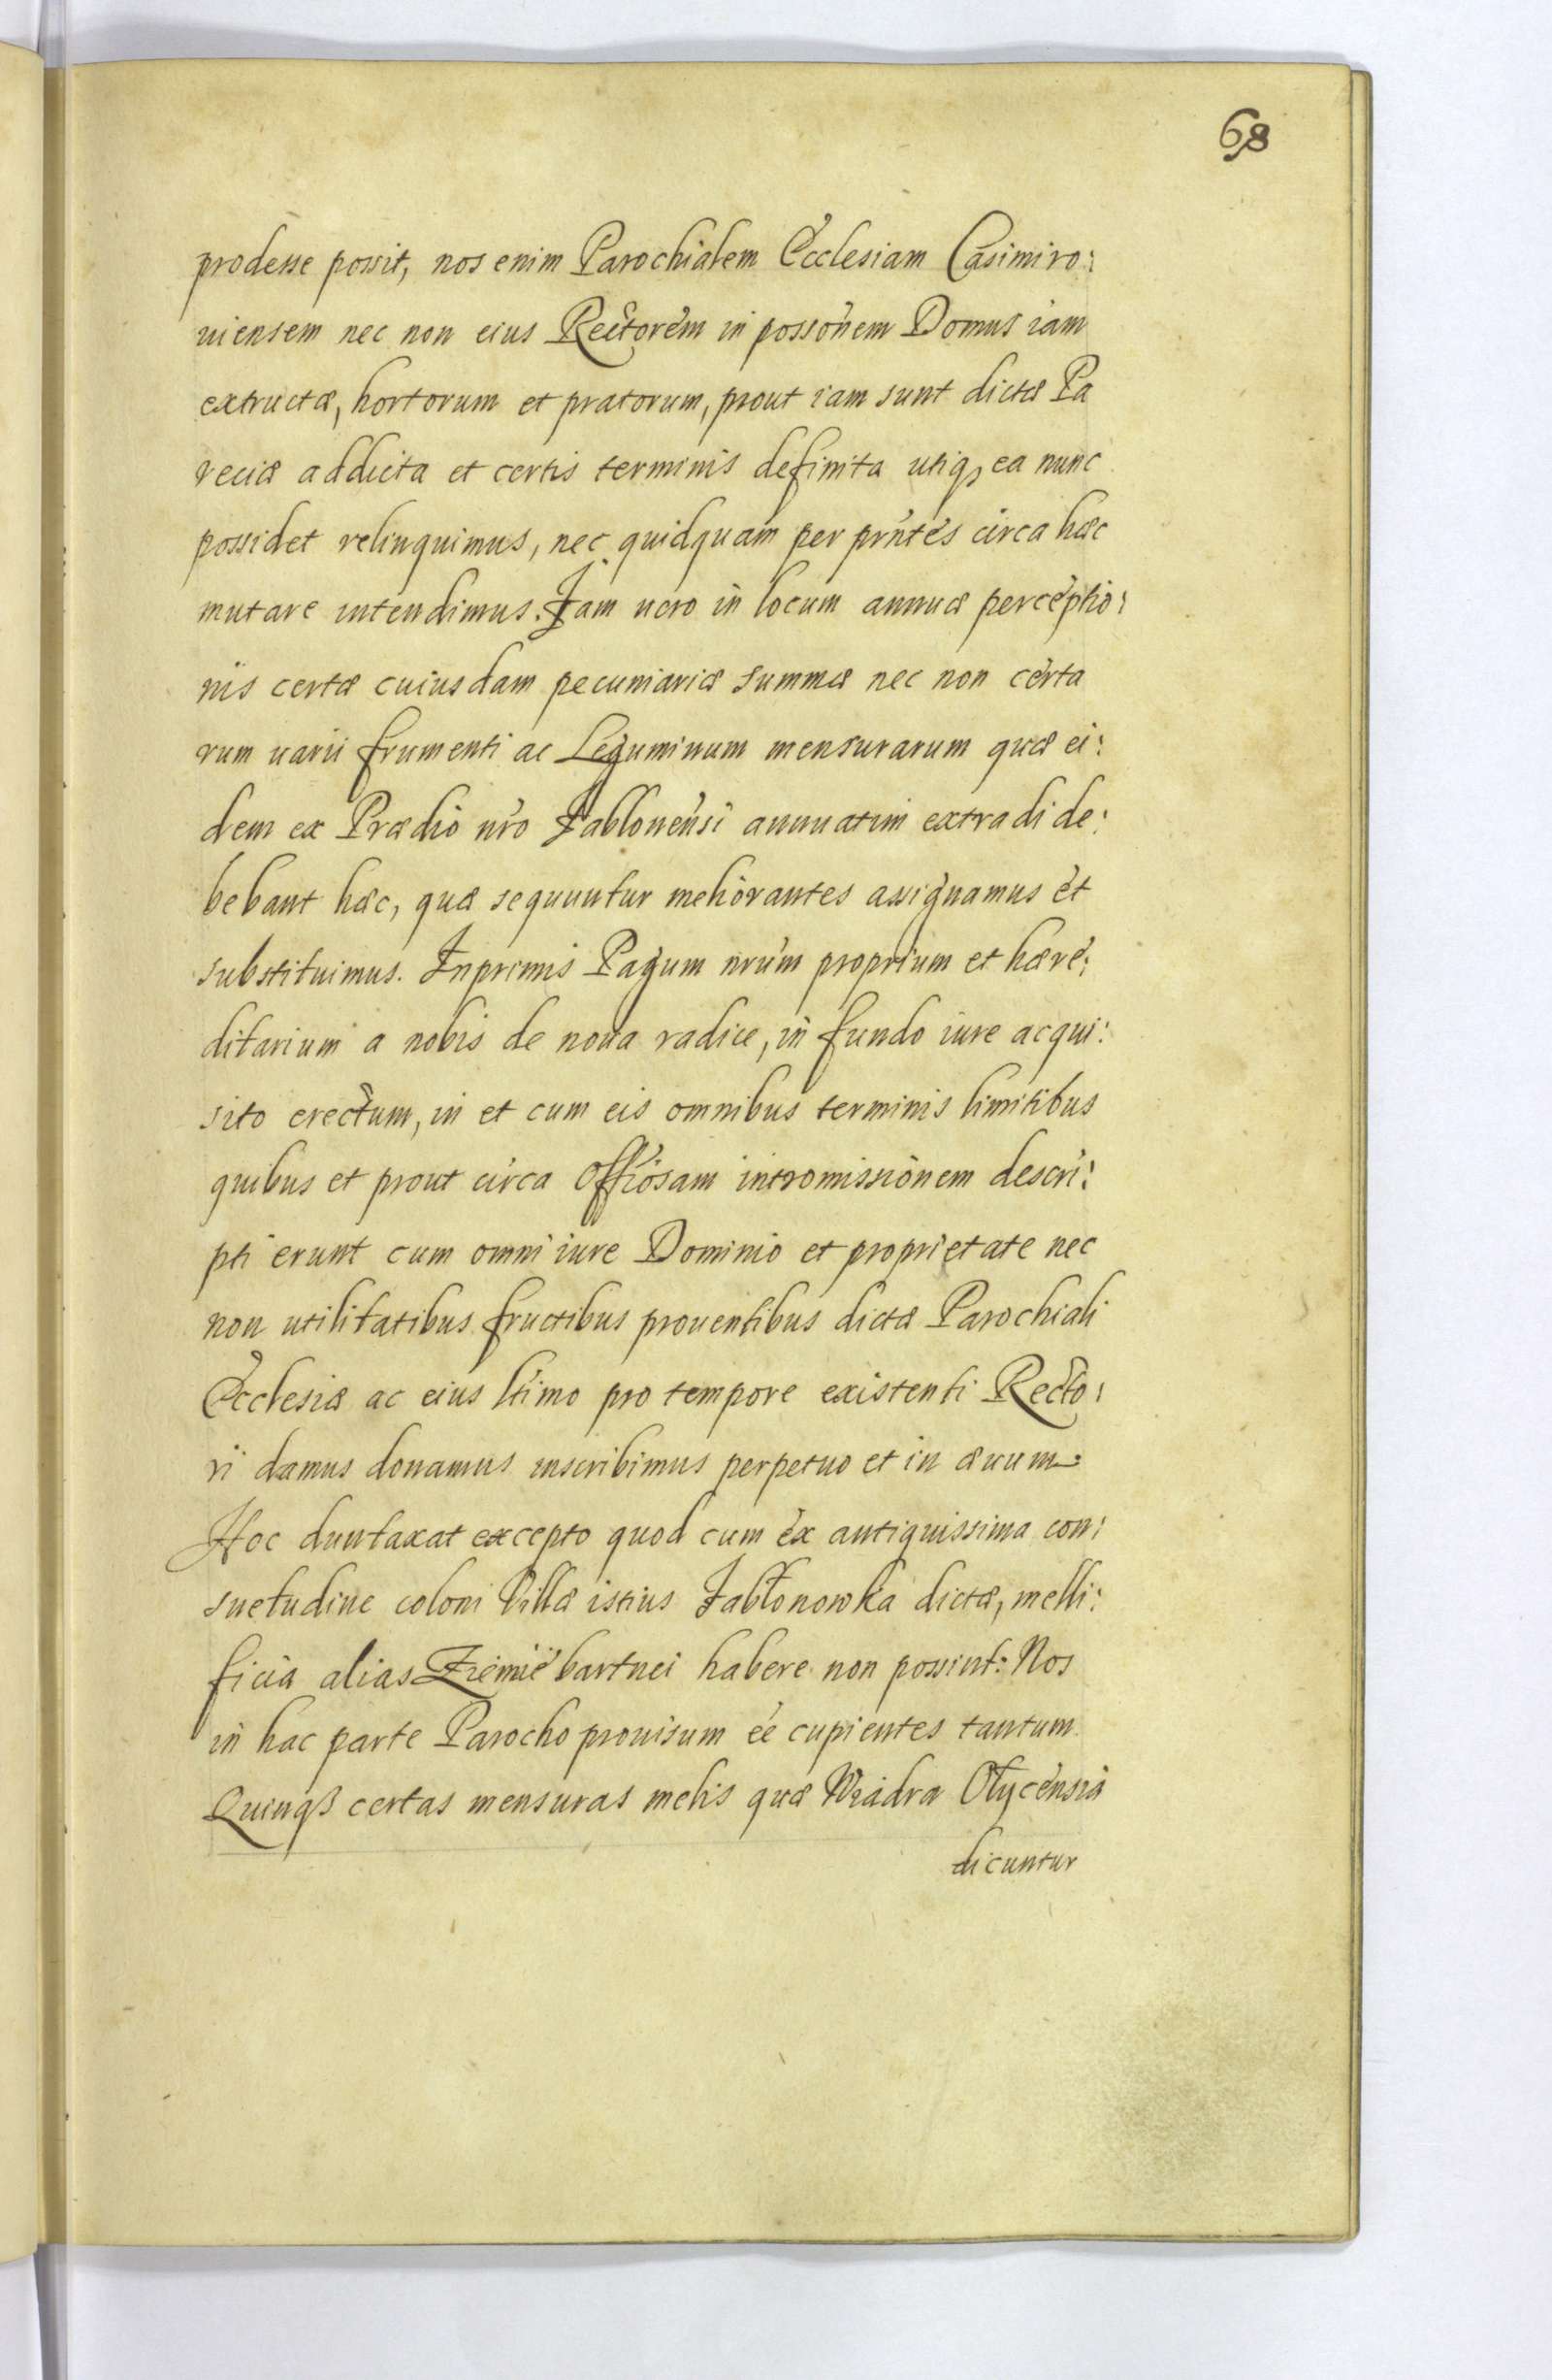 68
prodesse possit, nos enim Parochialem Ecclesiam Casimiro:
uiensem nec non eius Rectorem in possonem Domus iam
extructæ, hortorum et pratorum, prout iam sunt dictæ Pa
reciæ addicta et certis terminis definita utiq, ea nunc
possidet relinquimus, nec quidquam per prntes circa hæc
mutare intendimus. Jam uero in locum annuæ perceptio:
nis certæ cuiusdam pecuniariæ summæ nec non certa
rum uarii frumenti ac Leguminum mensurarum quæ ei:
dem ex Prædio nro Jablonensi annuatim extradi de:
bebant hæc, quæ sequuntur meliorantes assignamus et
substituimus. Inprimis Pagum nrum proprium et hære:
ditarium a nobis de noua radice, in fundo iure acqui:
sito erectum, in et cum eis omnibus terminis limitibus
quibus et prout circa Offiosam intromissionem descri:
pti erunt cum omni iure Dominio et proprietate nec
non utilitatibus fructibus prouentibus dictæ Parochiali
Ecclesiæ ac eius ltimo pro tempore existenti Recto:
ri damus donamus inscribimus perpetuo et in æuum.
Hoc duntaxat excepto quod cum ex antiquissima con:
suetudine coloni Villæ istius Jabłonowka dictæ, melli:
ficia alias Ziemie bartnei habere non possint: Nos
in hac parte Parocho prouisum ee cupientes tantum
Quinq3 certas mensuras melis quæ Wiadra Ołycensia
dicuntur